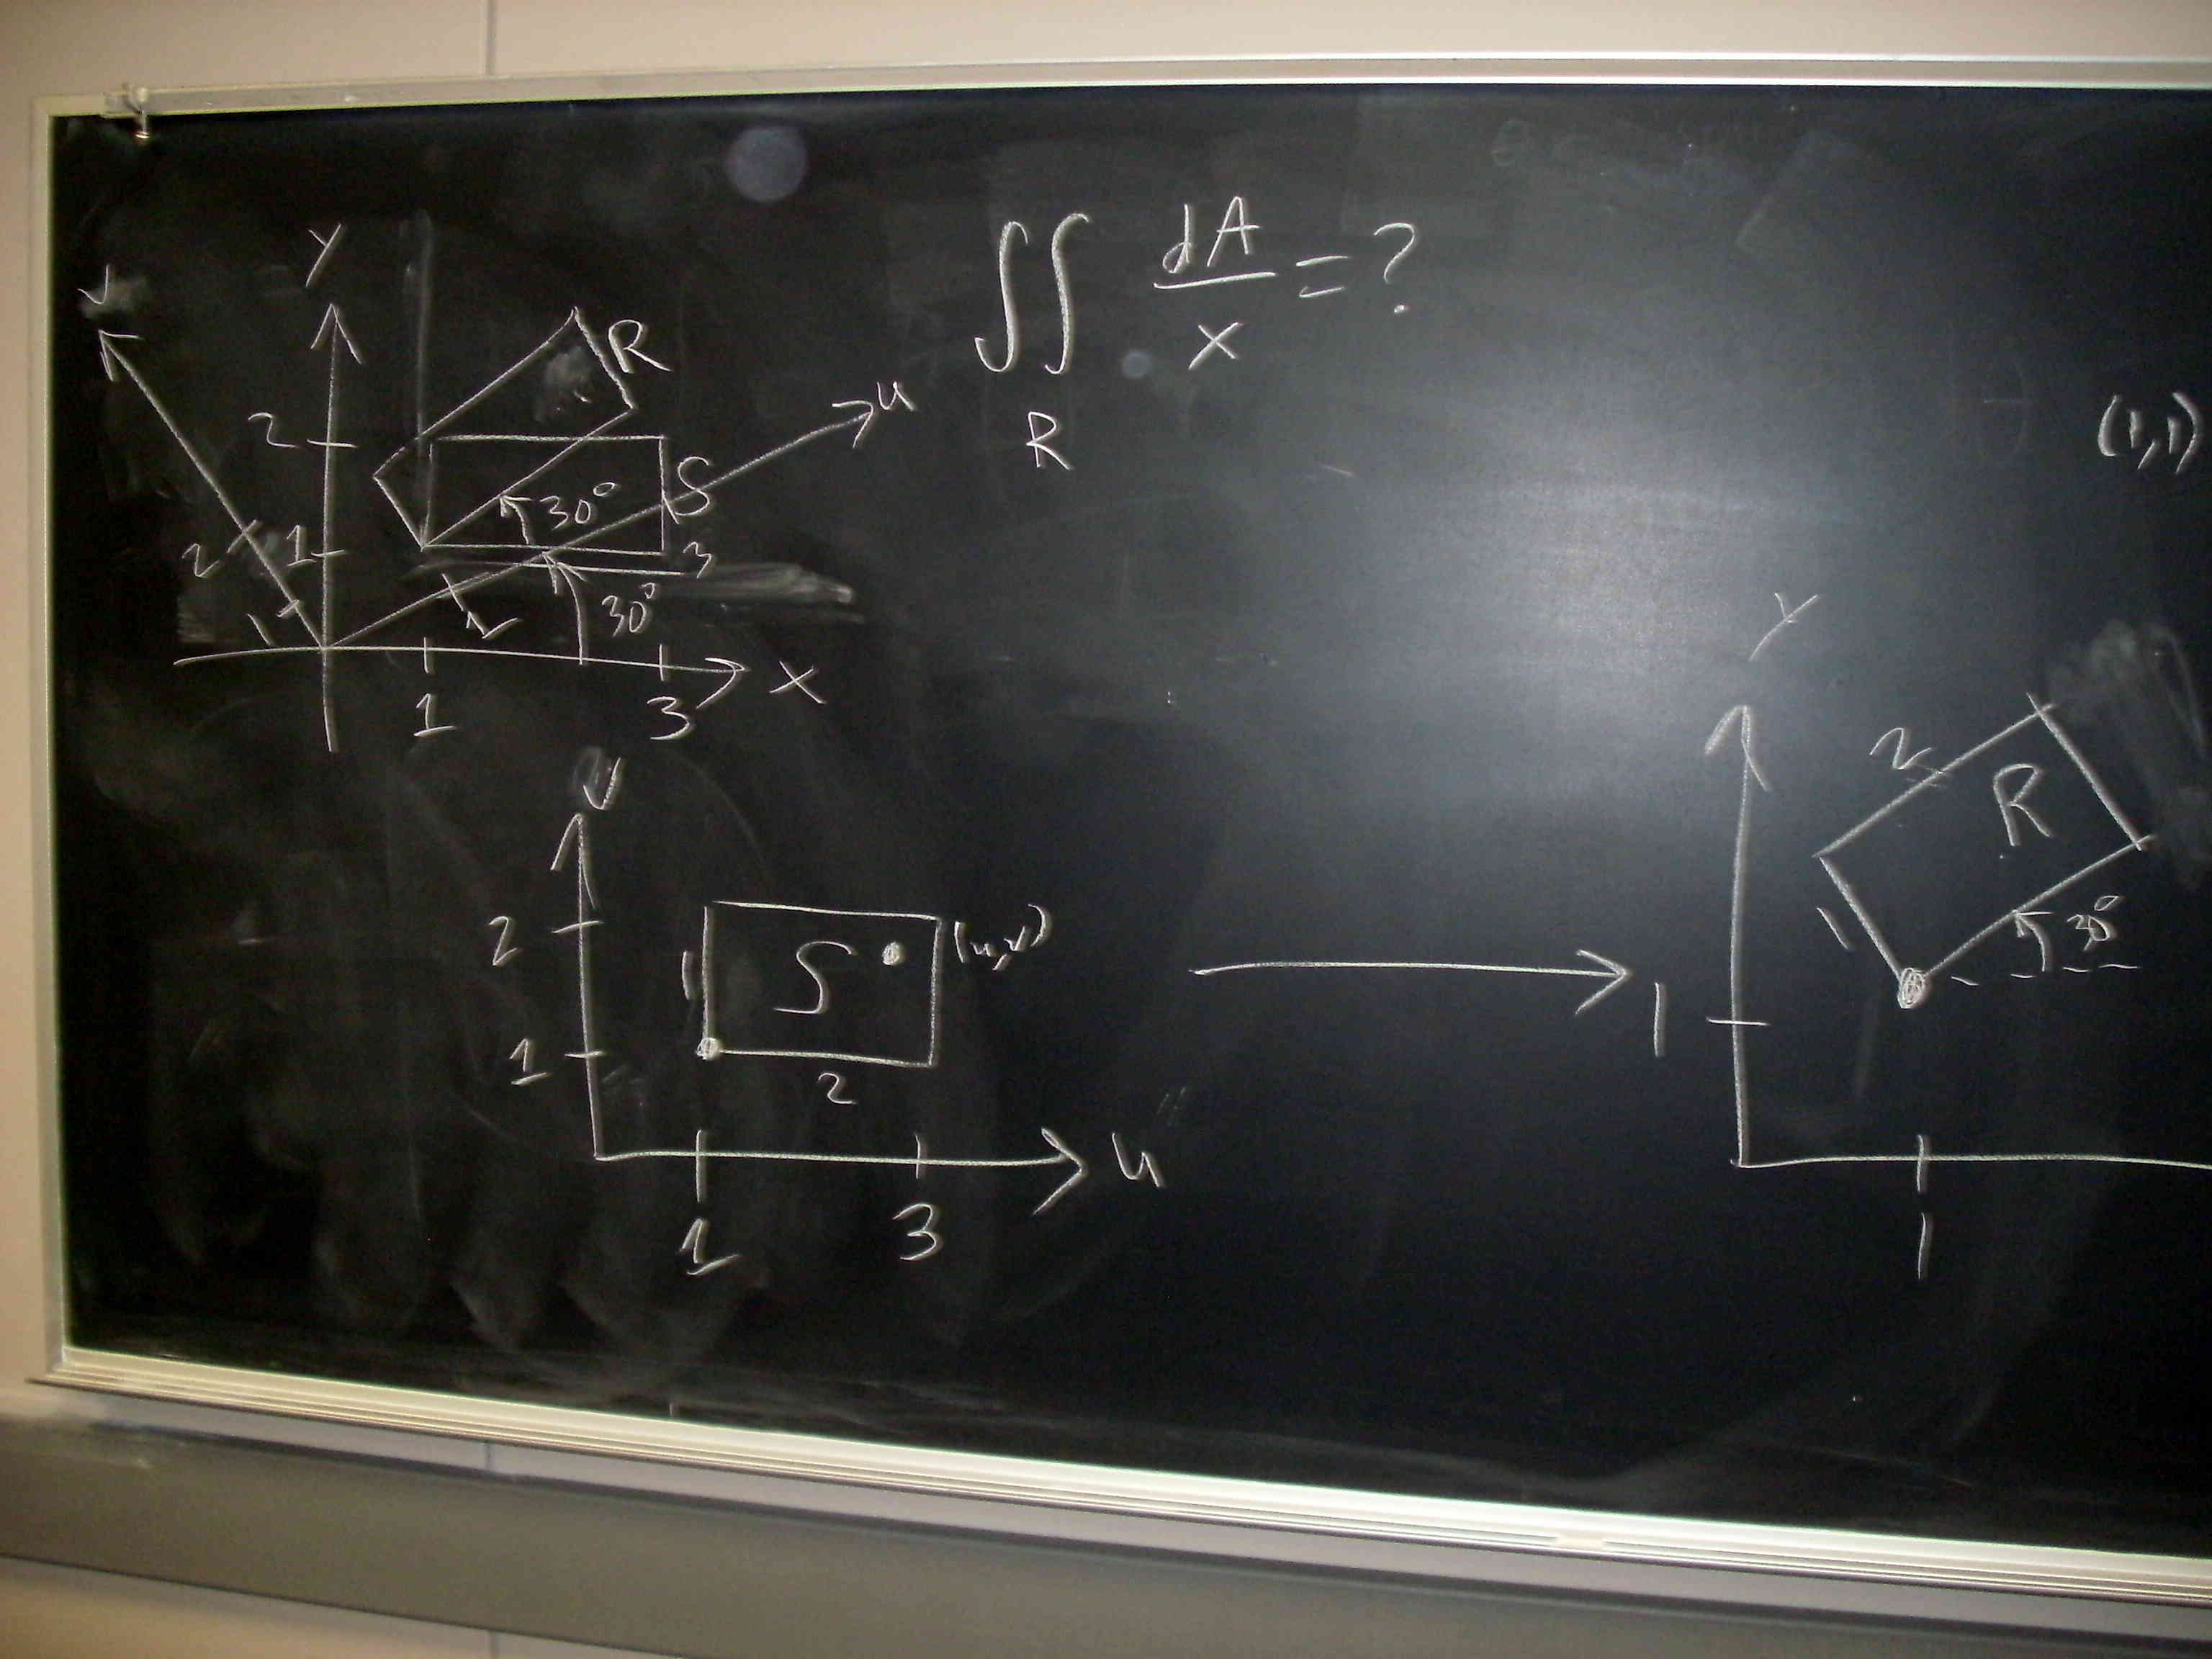 ∬ dA/x = ?
R
v
y
2
1
2
1
R
S
30°
3
30°
1
u
1
3
x
v
2
1
S
(u,v)
1
2
1
3
u
(1,1)
y
2
R
1
30°
1
1